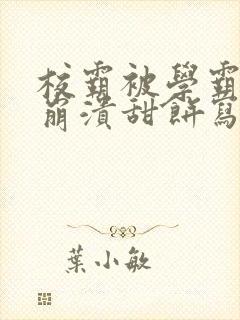 校霸被學霸
崩潰甜餅寫
葉小敏